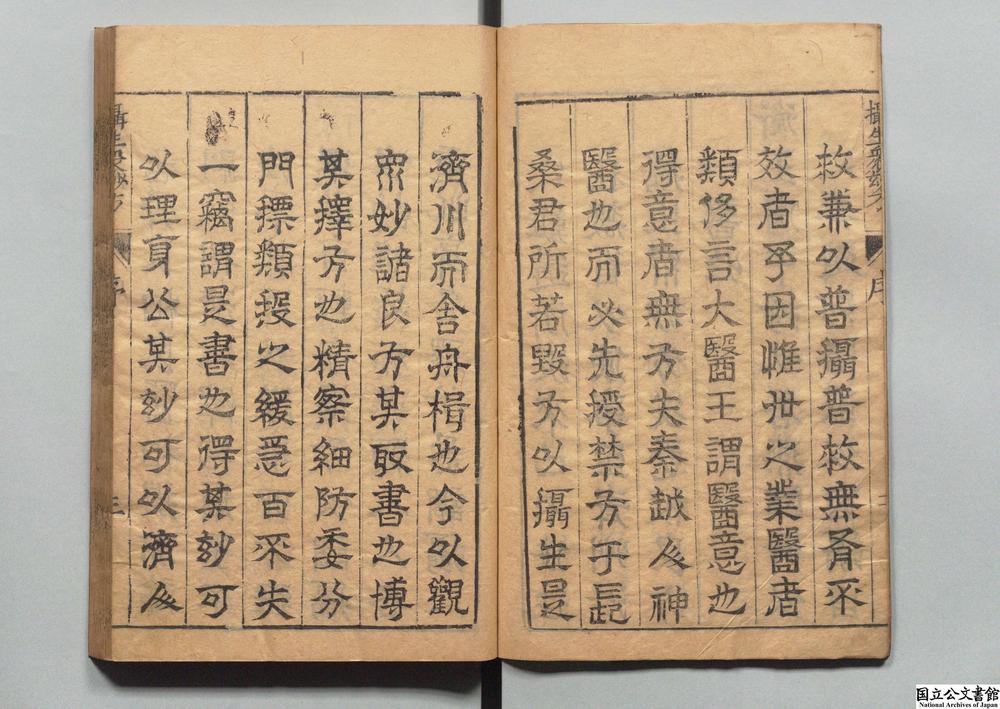 攝生衆妙方 序
救兼以普攝普救無胥不
效者乎因惟丗之業醫者
類侈言大醫王謂醫意也
得意者無方夫秦越人神
醫也而必先授禁方于長
桑君所若毀方以攝生是
濟川而舍舟楫也今以觀
衆妙諸良方其取書也博
其擇方也精察細防委分
門摽類投之緩急百不失
一竊謂是書也得其玅可
以理身公其玅可以濟人
攝生衆妙方 序 三
国立公文書館
National Archives of Japan